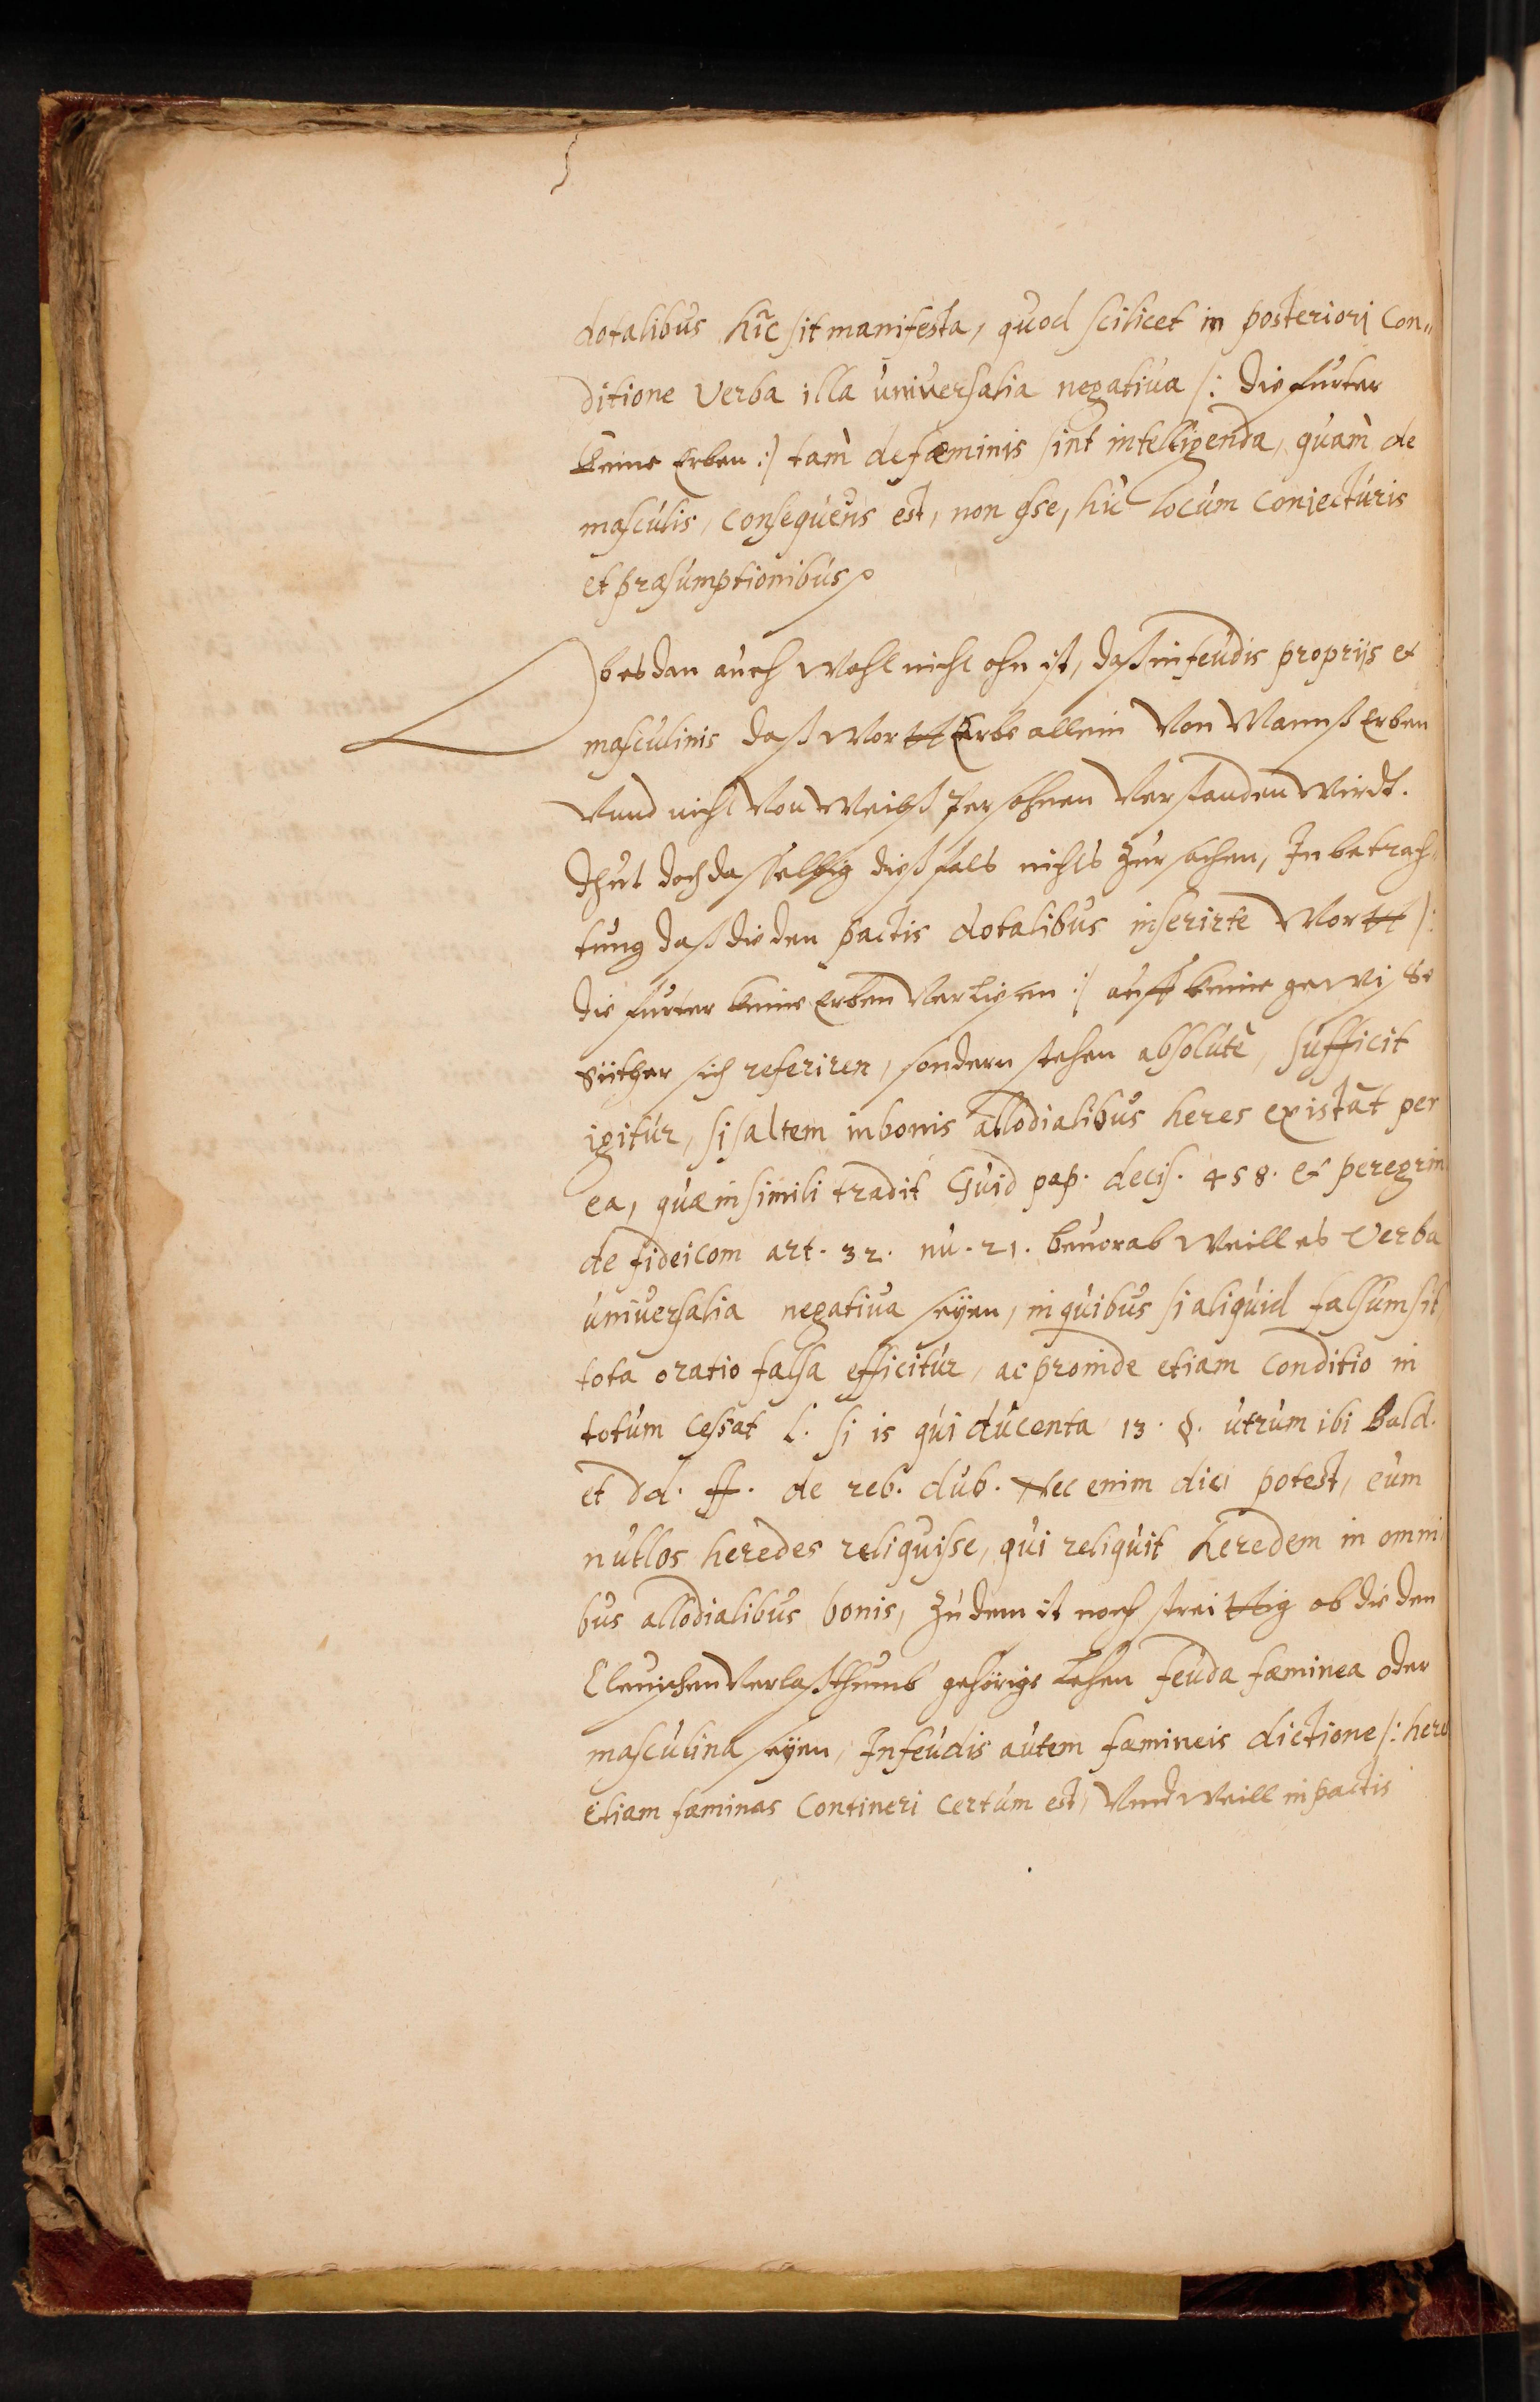 dotalibus hic sit manifesta, quod scilicet in posteriori Con„
ditione Verba illa universalia negativa /: die furter
keine Erben :/ tam de fæminis sint intelligenda, quam de
masculis, consequens est, non esse, hic locum conjecturis
et præsumptionibus
Ob es dan auch Wohl nicht ohn ist, daß in feudis propriis et
masculinis daß Wortt Erbe allein Von Mannß Erben
Vnnd nicht Von Weibß Persohnen Verstanden Wirdt.
Thut doch dasselbig dießfals nichts zur sachen, In betrach„
tung daß die den pactis dotalibus inserirte Wortt /:
die furter keine Erben Verliesen :/ auff keine gewisse
Güther sich referiren, sondern stehen absolutè, sufficit
igitur, si saltem in bonis allodialibus heres existat per
ea, quæ in simili tradit Guid pap. decis. 458. et peregrin
de fideicom art. 32. nu. 21. beuorab Weill es Verba
universalia negativa seyen, in quibus si aliquid falsum sit,
tota oratio falsa efficitur, ac proinde etiam conditio in
totum cessat l. si is qui ducenta 13. §. utrum ibi Bald.
et dd. ff. de reb. dub. Nec enim dici potest, eum
nullos heredes reliquisse, qui reliquit heredem in omni
bus allodialibus bonis, zu dem ist noch streittig ob die den
Verlaßthumb gehörige Lehen feuda fæminea oder
masculina seyen, In feudis autem fæmineis dictione /: here
etiam fæminas Contineri certum est, Vnnd Weill in pactis